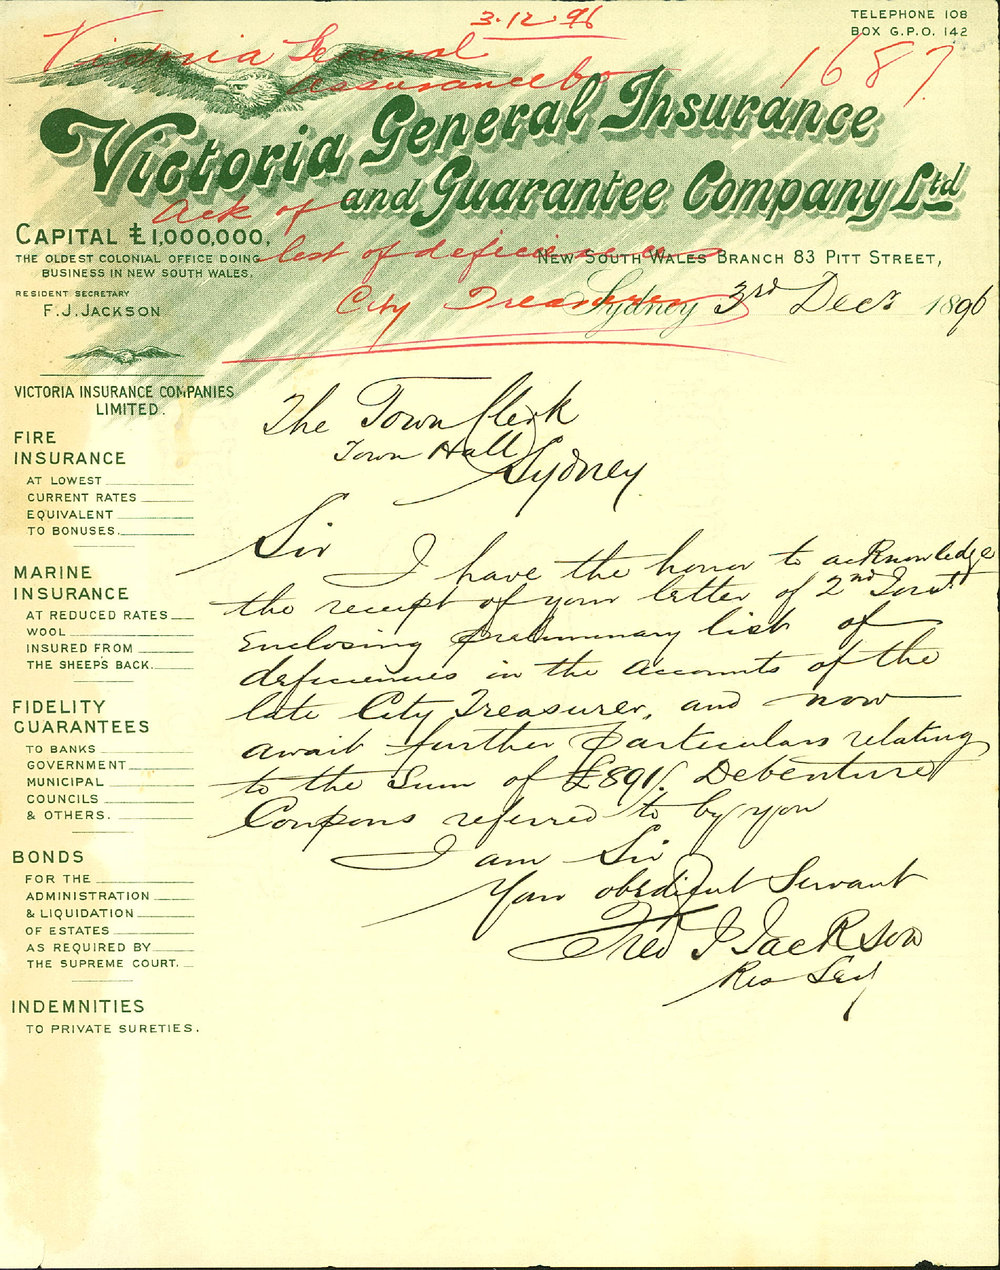 3.12.96
TELEPHONE 108
BOX G.P.O. 142
Victoria General
assurance Co
1687
Victoria General Insurance
and Guarantee Company Ltd
Ack of
list of deficiencies
City Treasurer
CAPITAL £1,000,000.
THE OLDEST COLONIAL OFFICE DOING
BUSINESS IN NEW SOUTH WALES.
RESIDENT SECRETARY
F. J. JACKSON
NEW SOUTH WALES BRANCH 83 PITT STREET,
Sydney 3rd Decr 1896
VICTORIA INSURANCE COMPANIES
LIMITED.
FIRE
INSURANCE
AT LOWEST
CURRENT RATES
EQUIVALENT
TO BONUSES.
MARINE
INSURANCE
AT REDUCED RATES
WOOL
INSURED FROM
THE SHEEP'S BACK.
FIDELITY
GUARANTEES
TO BANKS
GOVERNMENT
MUNICIPAL
COUNCILS
& OTHERS.
BONDS
FOR THE
ADMINISTRATION
& LIQUIDATION
OF ESTATES
AS REQUIRED BY
THE SUPREME COURT.
INDEMNITIES
TO PRIVATE SURETIES.
The Town Clerk
Town Hall
Sydney
Sir
I have the honor to acknowledge
the receipt of your letter of 2nd Inst
Enclosing preliminary list of
deficiencies in the accounts of the
late City Treasurer, and now
await further particulars relating
to the sum of £891/. Debenture
Coupons referred to by you
I am Sir
Your obedient Servant
Fred J Jackson
Res Secy